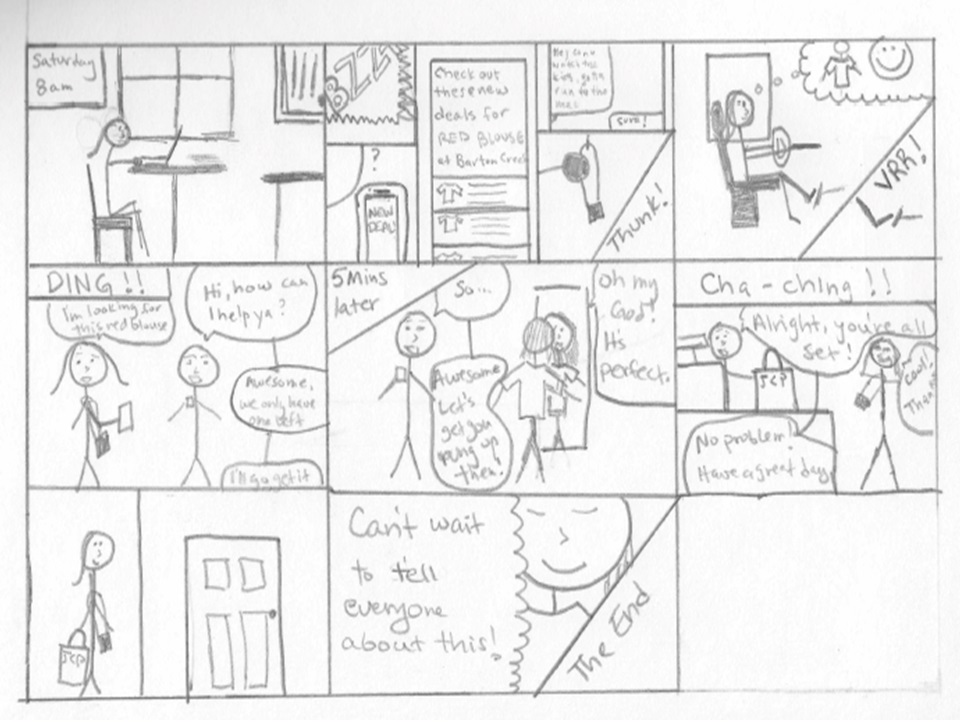 Saturday
8am
BZZZ
?
NEW
DEAL!
Check out
these new
deals for
RED BLOUSE
at Barton Creek
run to the
sure!
Thunk!
VRR!
DING!!
I'm looking for
this red blouse
Hi, how can
I help ya?
Awesome,
we only have
one left
I'll go get it
5 Mins
later
So...
Awesome
Let's
get you
rung up
then!
Oh my
God!
It's
perfect.
Cha-ching!!
Alright, you're all
set!
JCP
Cool!
No problem!
Have a great day
JCP
Can't wait
to tell
everyone
about this!
The End